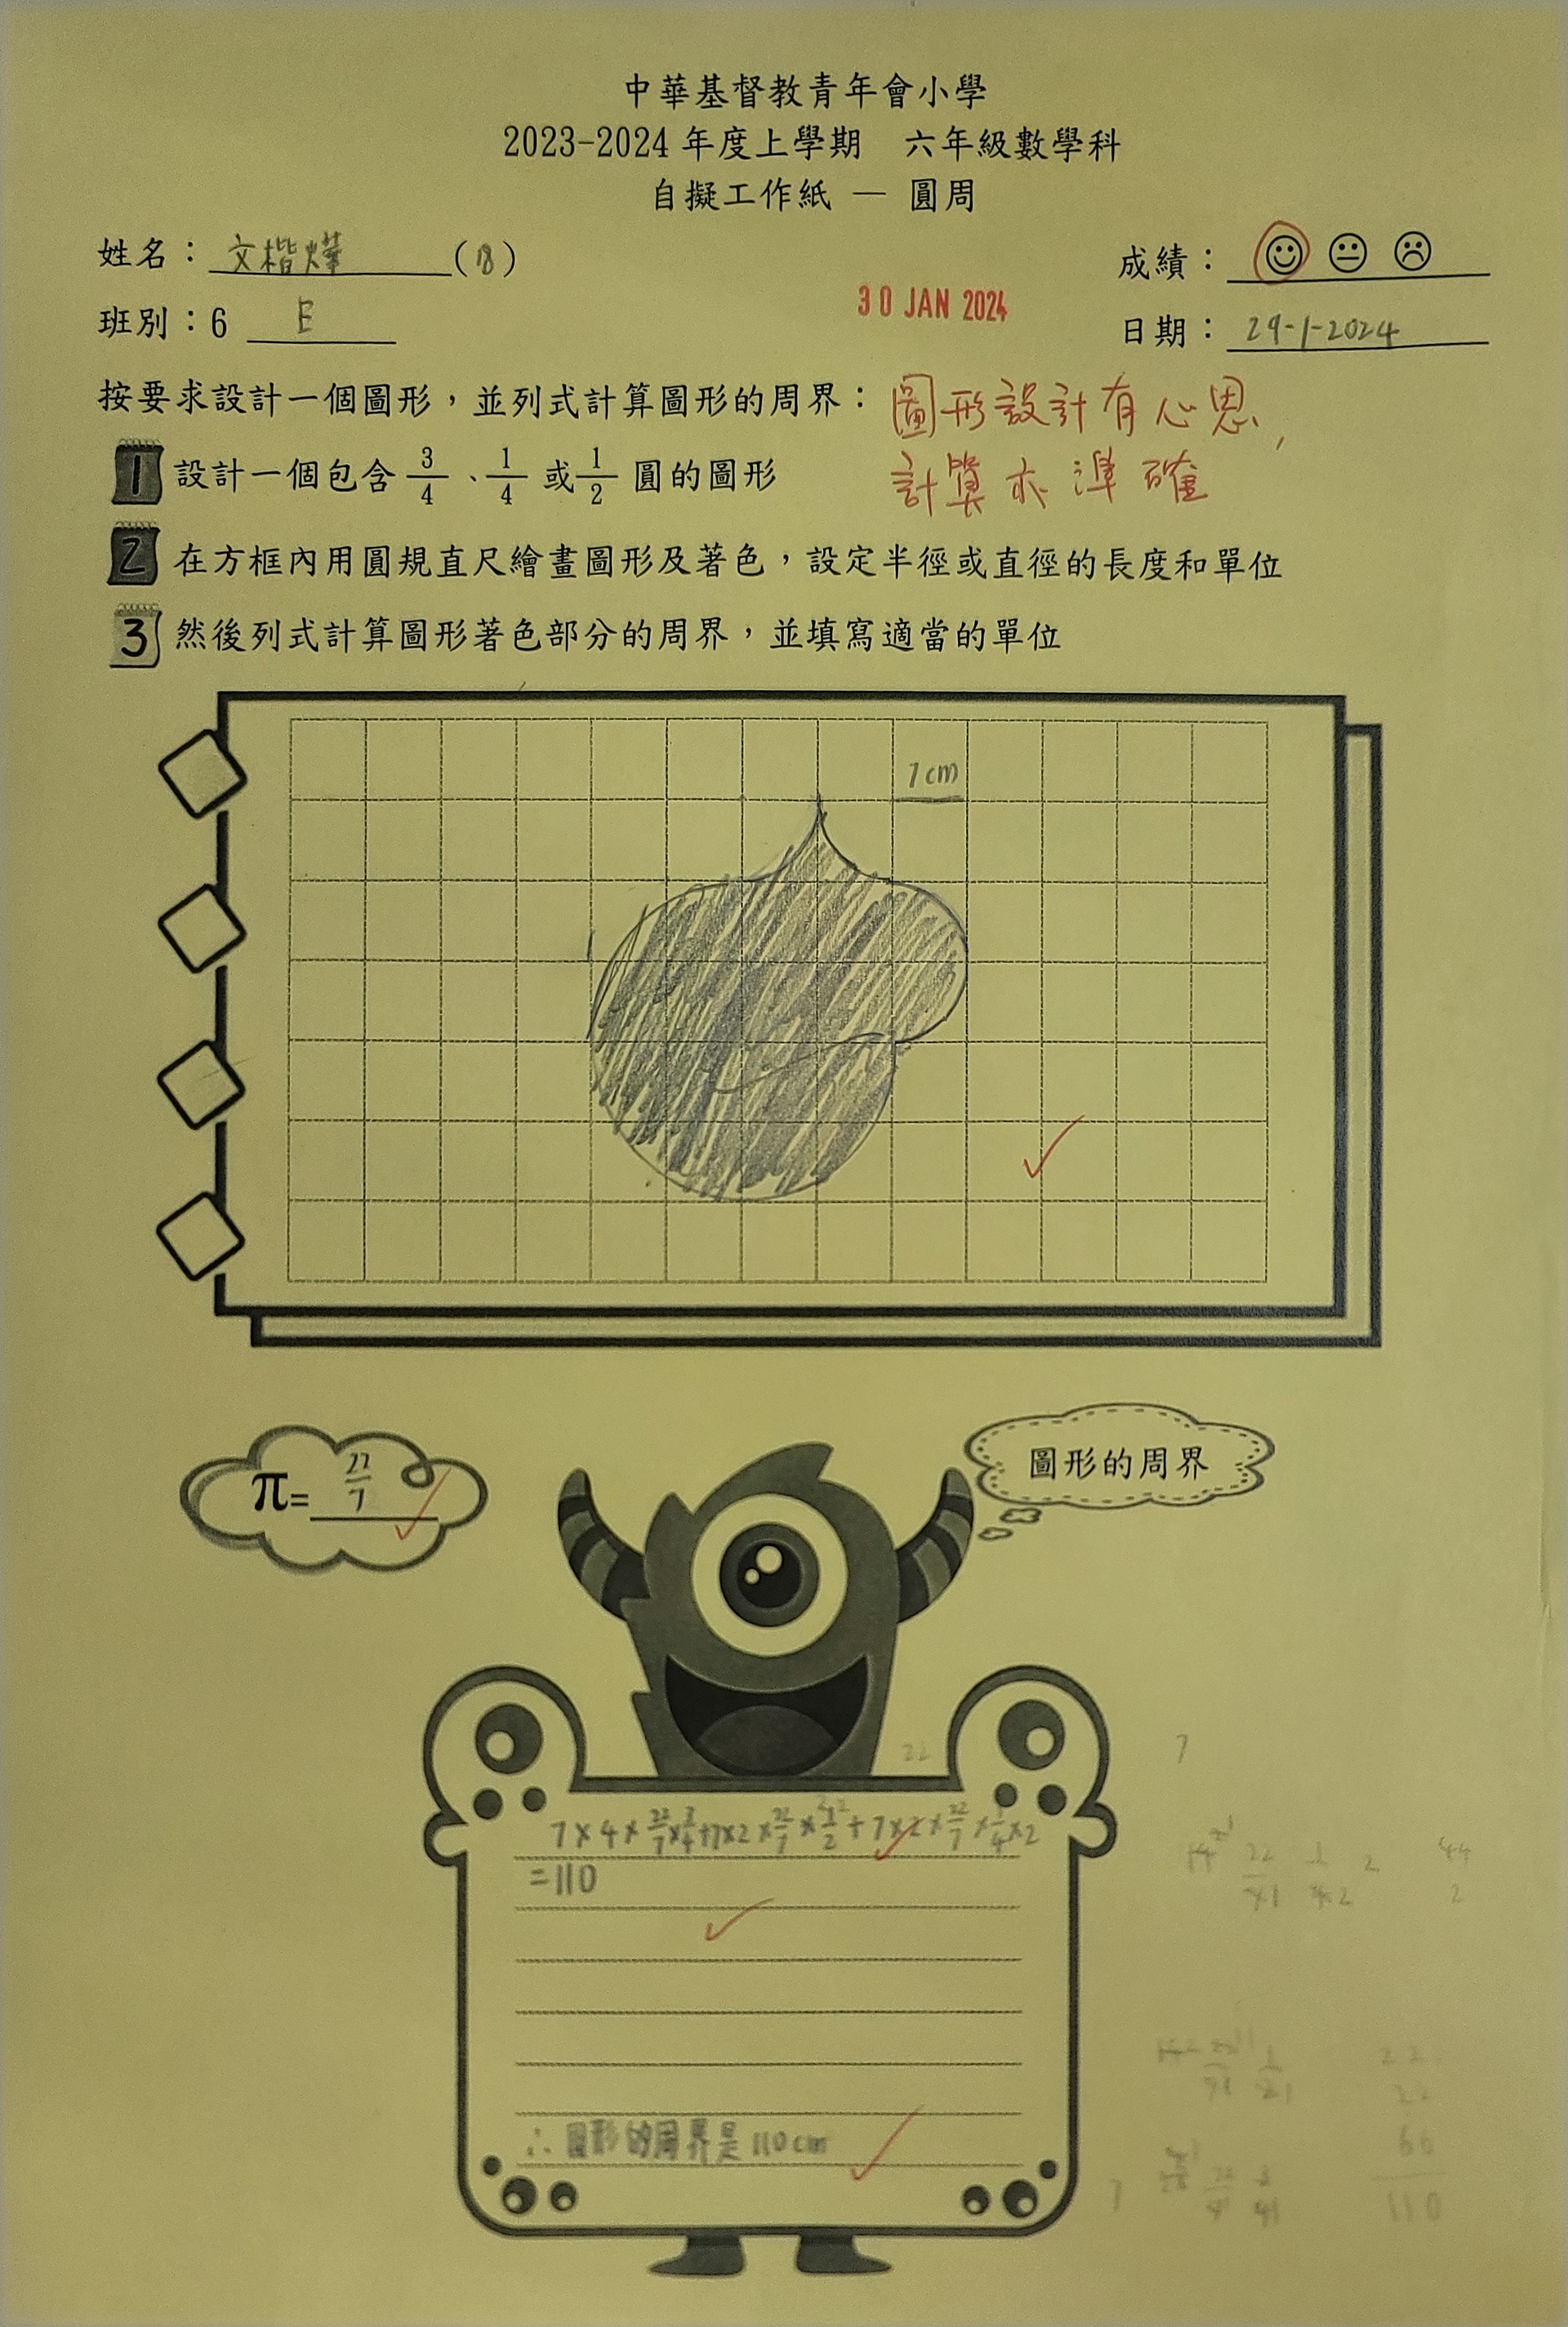 中華基督教青年會小學
2023-2024 年度上學期 六年級數學科
自擬工作紙 — 圓周
姓名：文楷燁(18)
成績：
班別：6 E
30 JAN 2024
日期：29-1-2024
按要求設計一個圖形，並列式計算圖形的周界：
圖形設計有心思,
計算亦準確
1 設計一個包含 3/4、1/4 或 1/2 圓的圖形
2 在方框內用圓規直尺繪畫圖形及著色，設定半徑或直徑的長度和單位
3 然後列式計算圖形著色部分的周界，並填寫適當的單位
7cm
π= 22/7
圖形的周界
7×4×22/7×3/4+7×2×22/7×1/2+7×2×22/7×1/4×2
=110
∴ 圖形的周界是 110cm
22
66
110